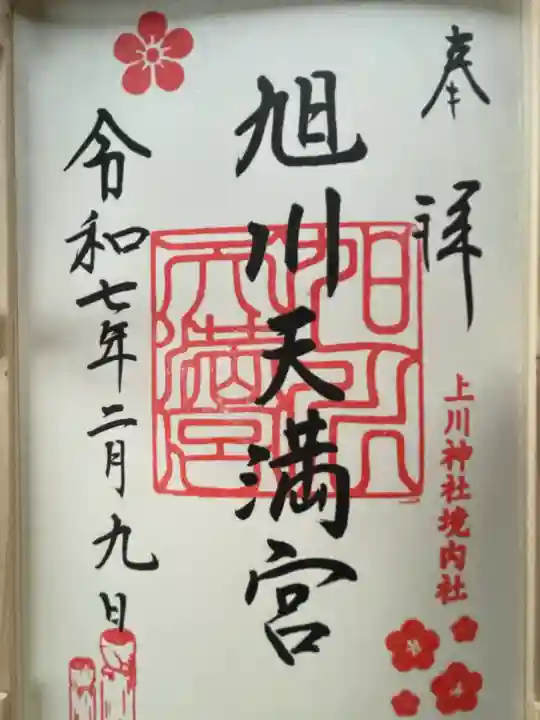 奉拝
上川神社境内社
旭川天満宮
令和七年二月九日